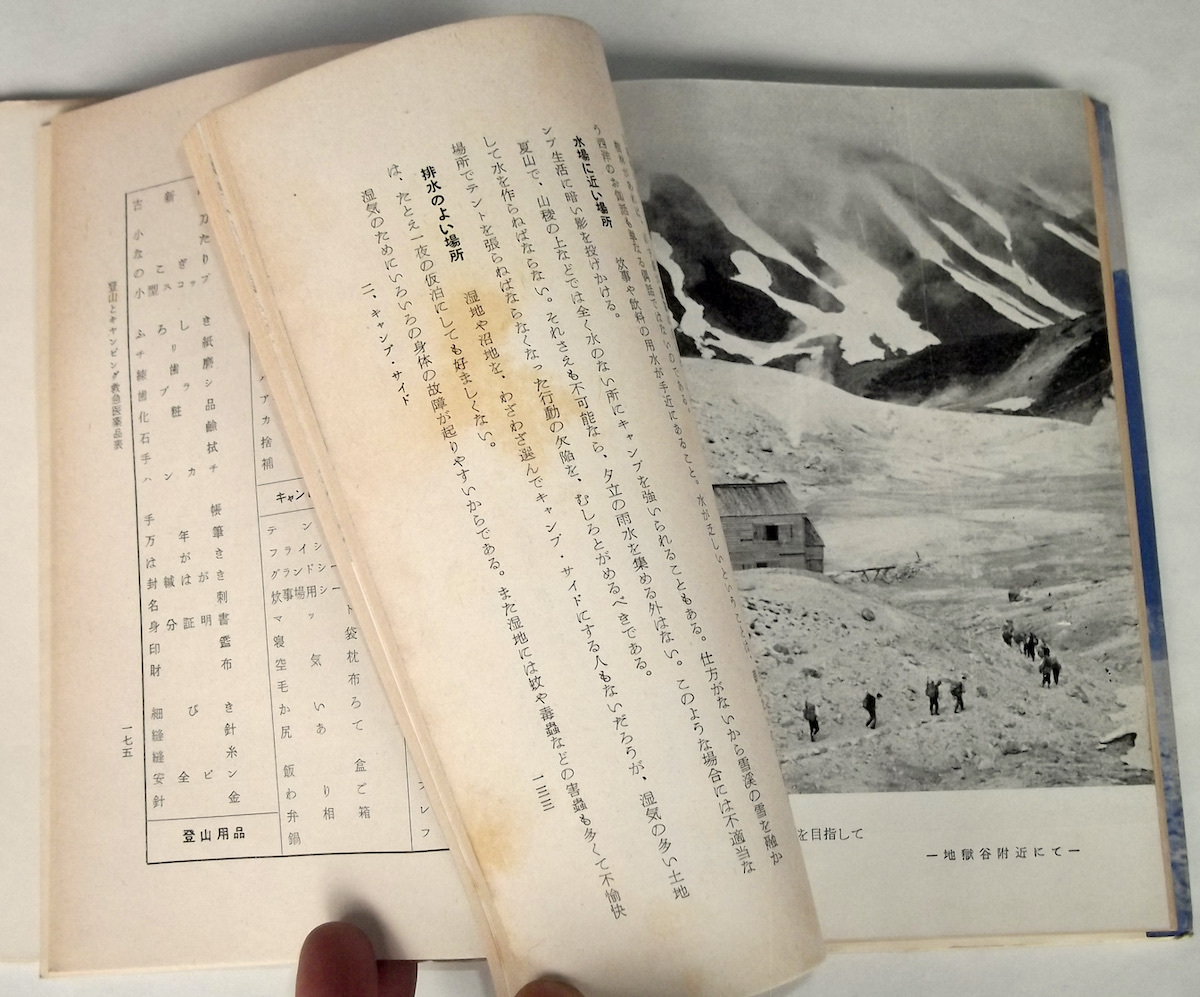 を目指して
―地獄谷附近にて―
水場に近い場所　炊事や飲料の用水が手近にあること。水が乏しいということは
ンプ生活に暗い影を投げかける。
夏山で、山稜の上などでは全く水のない所にキャンプを強いられることもある。仕方がないから雪渓の雪を融か
して水を作らねばならない。それさえも不可能なら、夕立の雨水を集める外はない。このような場合には不適当な
場所でテントを張らねばならなくなった行動の欠陥を、むしろとがめるべきである。
排水のよい場所　湿地や沼地を、わざわざ選んでキャンプ・サイドにする人もないだろうが、湿気の多い土地
は、たとえ一夜の仮泊にしても好ましくない。
湿気のためにいろいろの身体の故障が起りやすいからである。また湿地には蚊や毒蟲などの害蟲も多くて不愉快
二、キャンプ・サイド
一三三
キャン
テン
フライシ
グランドシー
炊事場用シート
マッ
寝袋
空気枕
毛布
かいろ
尻あて
飯盒
わりご
鍋
小刀
なた
のこぎり
小型スコップ
ふろしき
チリ紙
歯磨
歯ブラシ
化粧品
石鹸
手拭
ハンカチ
手帳
万年筆
はがき
封緘はがき
名刺
身分証明書
印鑑
財布
細びき
縫針
縫糸
安全ピン
針金
登山用品
登山とキャンピング救急医薬品表
一七五